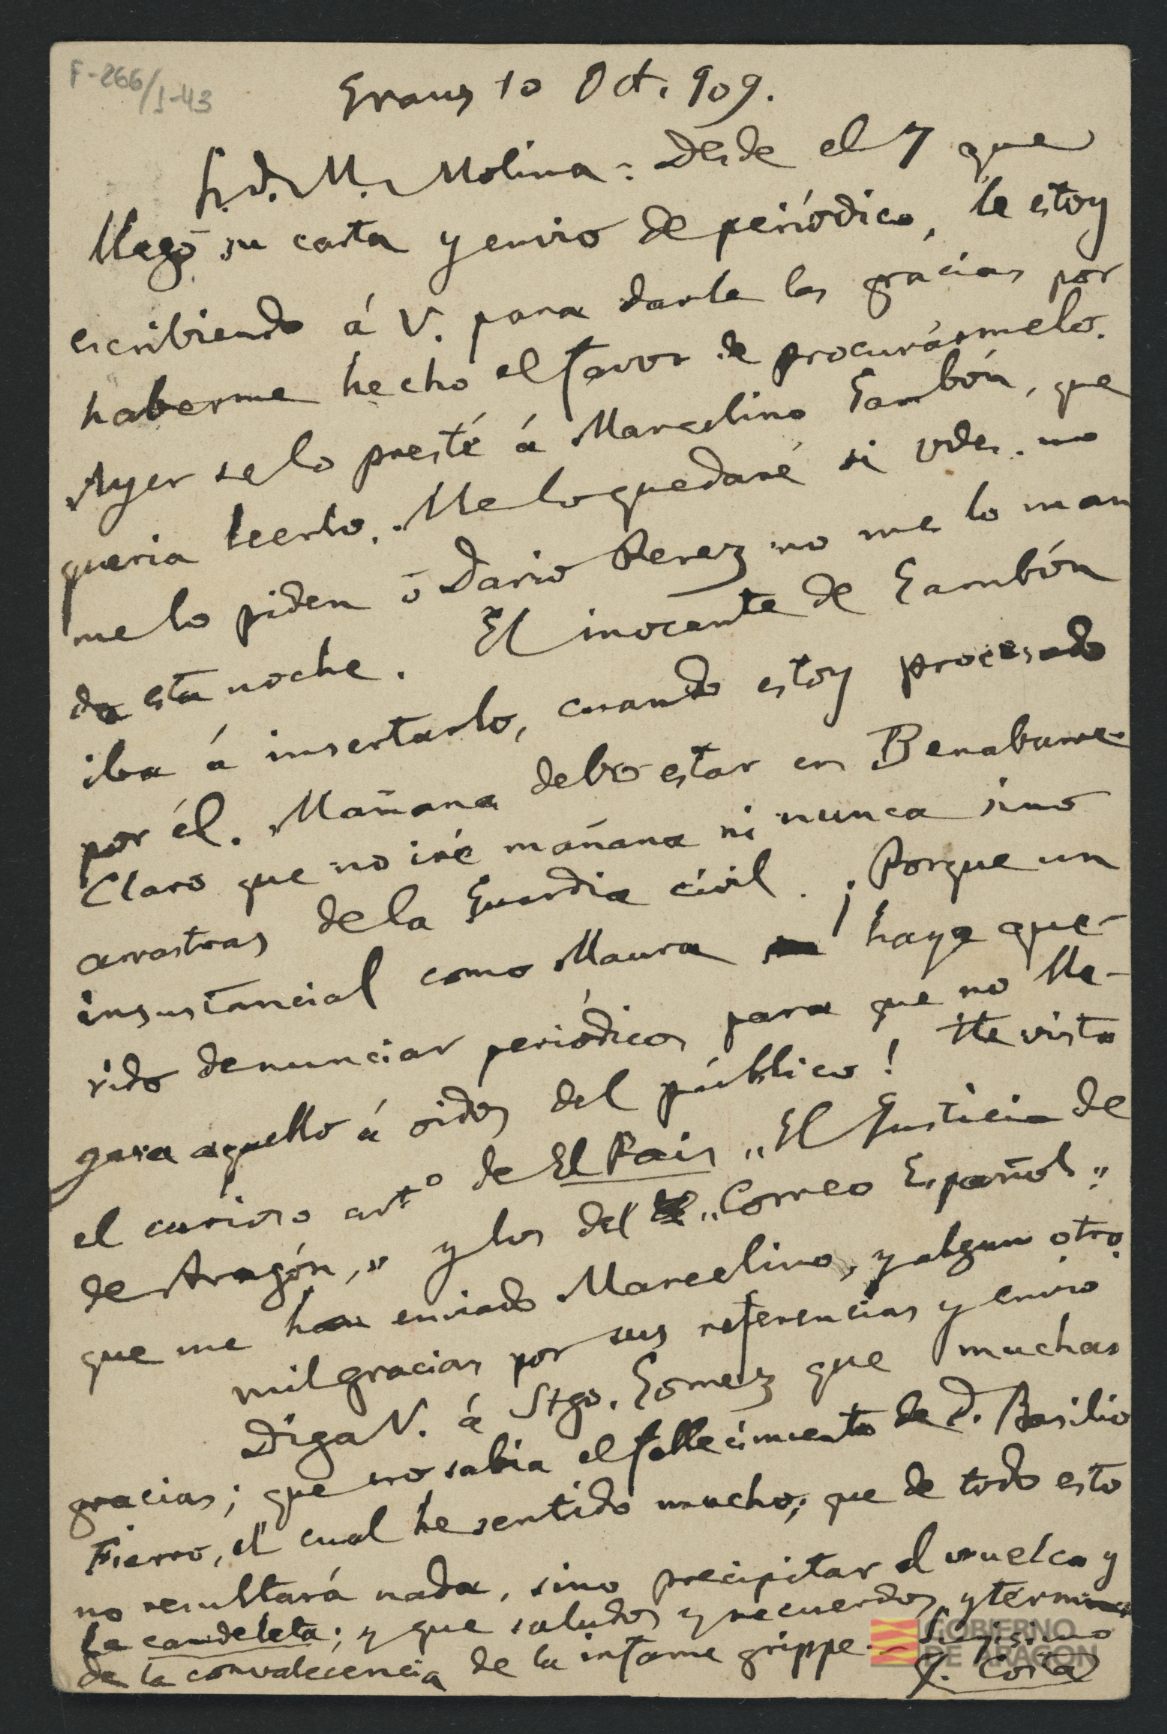 F-266/1-43
Graus 10 Oct. 909.
Sr. D. M. Molina: Desde el 7 que
llegó su carta y envio de periódico, le estoy
escribiendo á V. para darle las gracias por
haberme hecho el favor de procurármelo.
Ayer se lo presté á Marcelino Gambón, que
queria leerlo. Me lo quedaré si Vdes. no
me lo piden ó Dario Perez no me lo man
da esta noche. El inocente de Gambón
iba á insertarlo, cuando estoy procesado
por él. Mañana debo estar en Benabarre
Claro que no iré mañana ni nunca sino
arrastras de la Guardia civil. ¡Porque un
insustancial como Maura haya que-
rido denunciar periódicos para que no lle-
gara aquello á oidos del público! He visto
el curioso artº de El Pais "El Justicia de
de Aragón," y los del "Correo Español"
que me han enviado Marcelino, y algun otro.
mil gracias por sus referencias y envio
Diga V. á Stgo. Gomez que muchas
gracias; que no sabia el fallecimiento de D. Basilio
Fierro, el cual he sentido mucho; que de todo esto
no resultará nada, sino precipitar el vuelco y
la candeleta; y que saludos y recuerdos, y termine
de la convalecencia de la infame grippe.
J. Costa
GOBIERNO
DE ARAGON